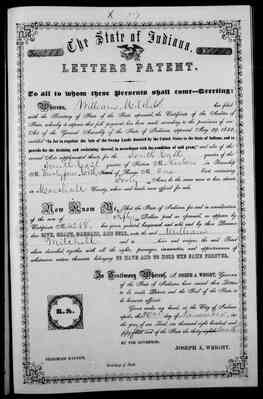 The State of Indiana.
LETTERS PATENT.
To all to whom these Presents shall come—Greeting:
Whereas, William Mitchell has filed
with the Secretary of State of the State aforesaid, the Certificate of the Auditor of
State, whereby it appears that full payment has been made according to the provisions of an
Act of the General Assembly of the State of Indiana, approved May 29, 1852,
entitled "An Act to regulate the Sale of the Swamp Lands donated by the United States to the State of Indiana, and to
provide for the draining and reclaiming thereof in accordance with the condition of said grant," and acts of the
second Acts supplemental thereto, for the South East quarter of the
South East quarter of Section in Township
No. North of Range No. One East containing
Forty Acres to the same more or less, situate
in Marshall County, where such land were offered for sale.
Now Know Ye, That the State of Indiana, for and in consideration
of the sum of Fifty Dollars, paid as aforesaid, as appears by
Certificate No. has given, granted, bargained and sold, and by these Presents
does GIVE, GRANT, BARGAIN, AND SELL, unto the said William
Mitchell and to his heirs and assigns, the said Tract
above described, together with all the rights, privileges, immunities, and appurtenances of
whatsoever nature thereunto belonging, TO HAVE AND TO HOLD THE SAME FOREVER.
In Testimony Whereof, I, JOSEPH A. WRIGHT, Governor
of the State of Indiana, have caused these Letters
to be made Patent, and the Seal of the State to
be hereunto affixed.
Given under my hand, at the City of Indianapolis,
the day of November in
the year of our Lord one thousand eight hundred and
fifty and of the State the thirty-
BY THE GOVERNOR,
JOSEPH A. WRIGHT.
Secretary of State.